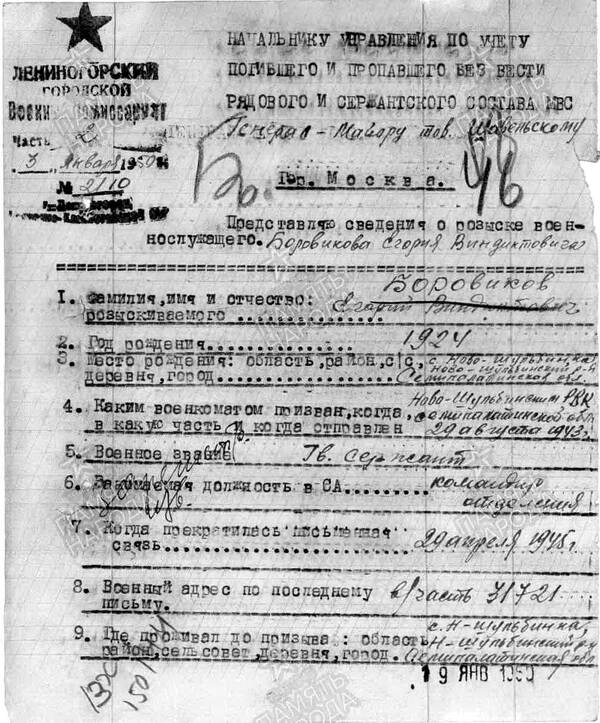 ЛЕНИНОГОРСКИЙ
ГОРОДСКОЙ
Военный Комиссариат
Часть 2
3 Января 1950 г.
№ 2/10
НАЧАЛЬНИКУ УПРАВЛЕНИЯ ПО УЧЕТУ
ПОГИБШЕГО И ПРОПАВШЕГО БЕЗ ВЕСТИ
РЯДОВОГО И СЕРЖАНТСКОГО СОСТАВА МВС
Генерал-Майору тов. Шавельскому
гор. Москва.
Представляю сведения о розыске воен-
нослужащего. Боровикова Егория Виндиктовича
Боровиков
1. Фамилия, имя и отчество: Егорий Виндиктович
розыскиваемого
2. Год рождения 1924
3. Место рождения: область, район, с/с, с. Ново-Шульбинка,
Ново-Шульбинский р-н
деревня, город Семипалатинская обл.
Ново-Шульбинским РВК
4. Каким военкоматом призван, когда, Семипалатинской обл.
в какую часть и когда отправлен 29 августа 1943 г.
5. Военное звание Гв. сержант
6. Занимаемая должность в СА командир
отделения
7. Когда прекратилась письменная
связь 29 апреля 1945 г.
8. Военный адрес по последнему в/часть 31721
письму.
с. Н-Шульбинка,
9. Где проживал до призыва: область, Н-Шульбинский р-н
район, сельсовет, деревня, город. Семипалатинская обл.
19 ЯНВ 1950